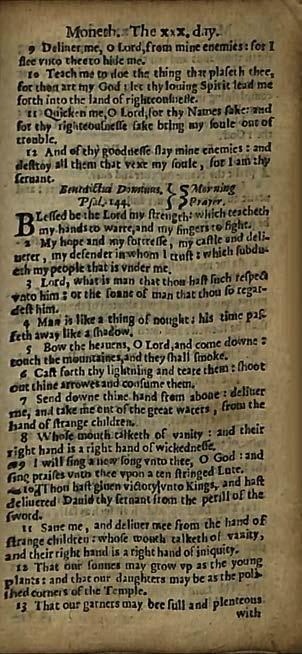 Moneth. The xxx. day.
9 Deliuer me, O Lord, from mine enemies: for I
flee vnto thee to hide me.
10 Teach me to doe the thing that pleaseth thee,
for thou art my God: let thy louing Spirit lead me
forth into the land of righteousnesse.
11 Quicken me, O Lord, for thy Names sake: and
for thy righteousnesse sake bring my soule out of
trouble.
12 And of thy goodnesse slay mine enemies: and
destroy all them that vexe my soule, for I am thy
seruant.
Benedictus Dominus. Morning
Psal. 144. Prayer.
BLessed be the Lord my strength: which teacheth
my hands to warre, and my fingers to fight.
2 My hope and my fortresse, my castle and deli-
uerer, my defender in whom I trust: which subdu-
eth my people that is vnder me.
3 Lord, what is man that thou hast such respect
vnto him: or the sonne of man that thou so regar-
dest him.
4 Man is like a thing of nought: his time pas-
seth away like a shadow.
5 Bow the heauens, O Lord, and come downe:
touch the mountaines, and they shall smoke.
6 Cast forth thy lightning and teare them: shoot
out thine arrowes and consume them.
7 Send downe thine hand from aboue: deliuer
me, and take me out of the great waters, from the
hand of strange children.
8 Whose mouth talketh of vanity: and their
right hand is a right hand of wickednesse.
9 I will sing a new song vnto thee, O God: and
sing praises vnto thee vpon a ten stringed Lute.
10 Thou hast giuen victory vnto Kings, and hast
deliuered Dauid thy seruant from the perill of the
sword.
11 Saue me, and deliuer mee from the hand of
strange children: whose mouth talketh of vanity,
and their right hand is a right hand of iniquity.
12 That our sonnes may grow vp as the young
plants: and that our daughters may be as the poli-
shed corners of the Temple.
13 That our garners may bee full and plenteous
with